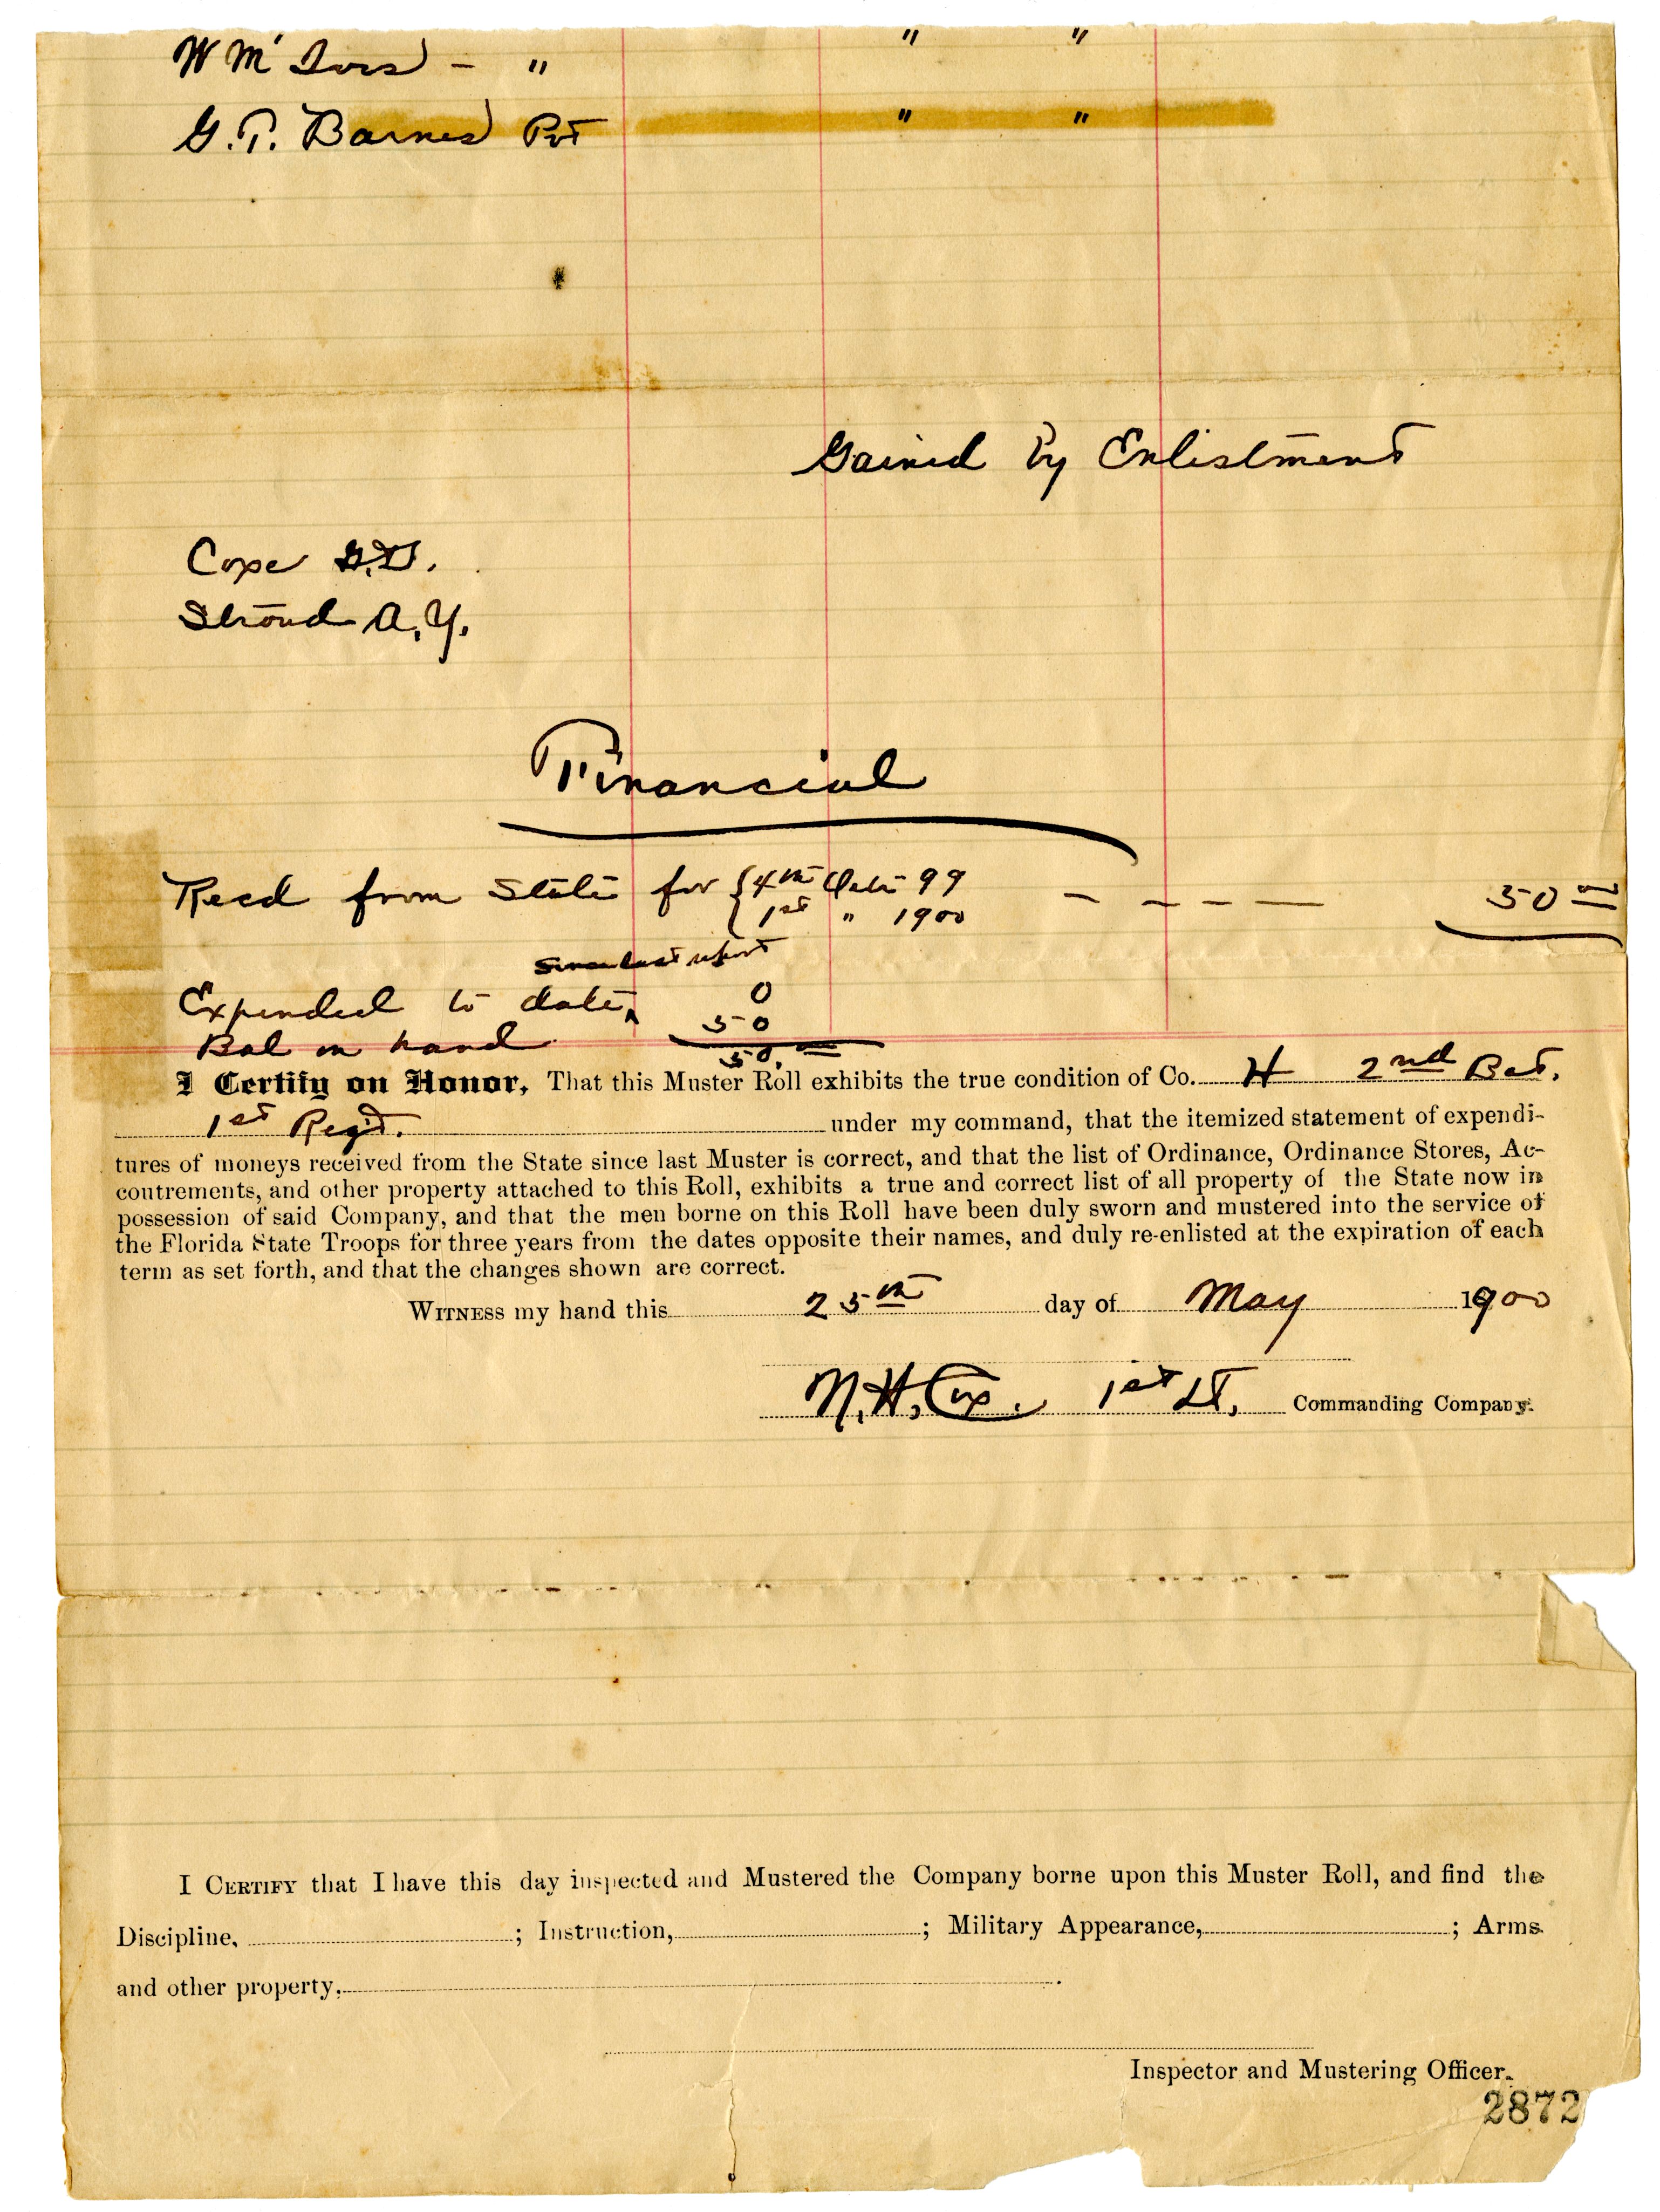 WM Ivers - " " "
G.T. Barnes Pvt " "
Gained by Enlistment
Cope
Stroud A.Y.
Financial
Recd from State for { 4th Qutr 99 - - - - 50 00
{ 1st " 1900
since last report
Expended to date ^ 0
Bal on hand 50
50.00
I Certify on Honor, That this Muster Roll exhibits the true condition of Co. H 2nd Bat.
1st Regt. under my command, that the itemized statement of expendi-
tures of moneys received from the State since last Muster is correct, and that the list of Ordinance, Ordinance Stores, Ac-
coutrements, and other property attached to this Roll, exhibits a true and correct list of all property of the State now in
possession of said Company, and that the men borne on this Roll have been duly sworn and mustered into the service of
the Florida State Troops for three years from the dates opposite their names, and duly re-enlisted at the expiration of each
term as set forth, and that the changes shown are correct.
WITNESS my hand this 25th day of May 1900
N.H. Cox. 1st Lt, Commanding Company.
I CERTIFY that I have this day inspected and Mustered the Company borne upon this Muster Roll, and find the
Discipline, ; Instruction, ; Military Appearance, ; Arms
and other property, .
Inspector and Mustering Officer.
2872